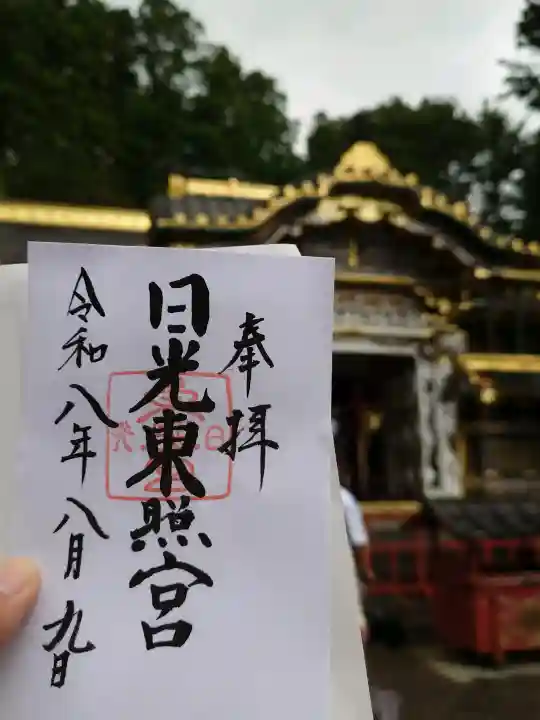 奉拝
日光東照宮
令和八年八月九日